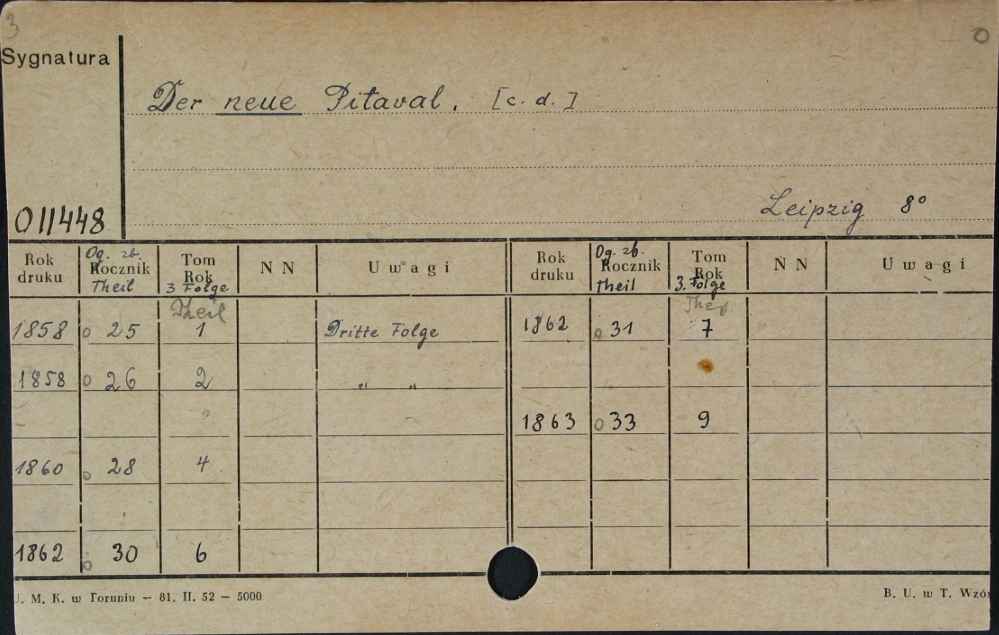 3
0
Sygnatura
Der neue Pitaval. [c. d.]
Leipzig 8°
011448
Rok druku Og. zb. Rocznik Theil Tom Rok 3 Folge Theil N N Uwagi Rok druku Og. zb. Rocznik Theil Tom Rok 3. Folge N N Uwagi
1858 0 25 1 Dritte Folge 1862 0 31 7
1858 0 26 2 " "
1863 0 33 9
1860 0 28 4
1862 0 30 6
U. M. K. w Toruniu — 81. II. 52 — 5000
B. U. w T. Wzór